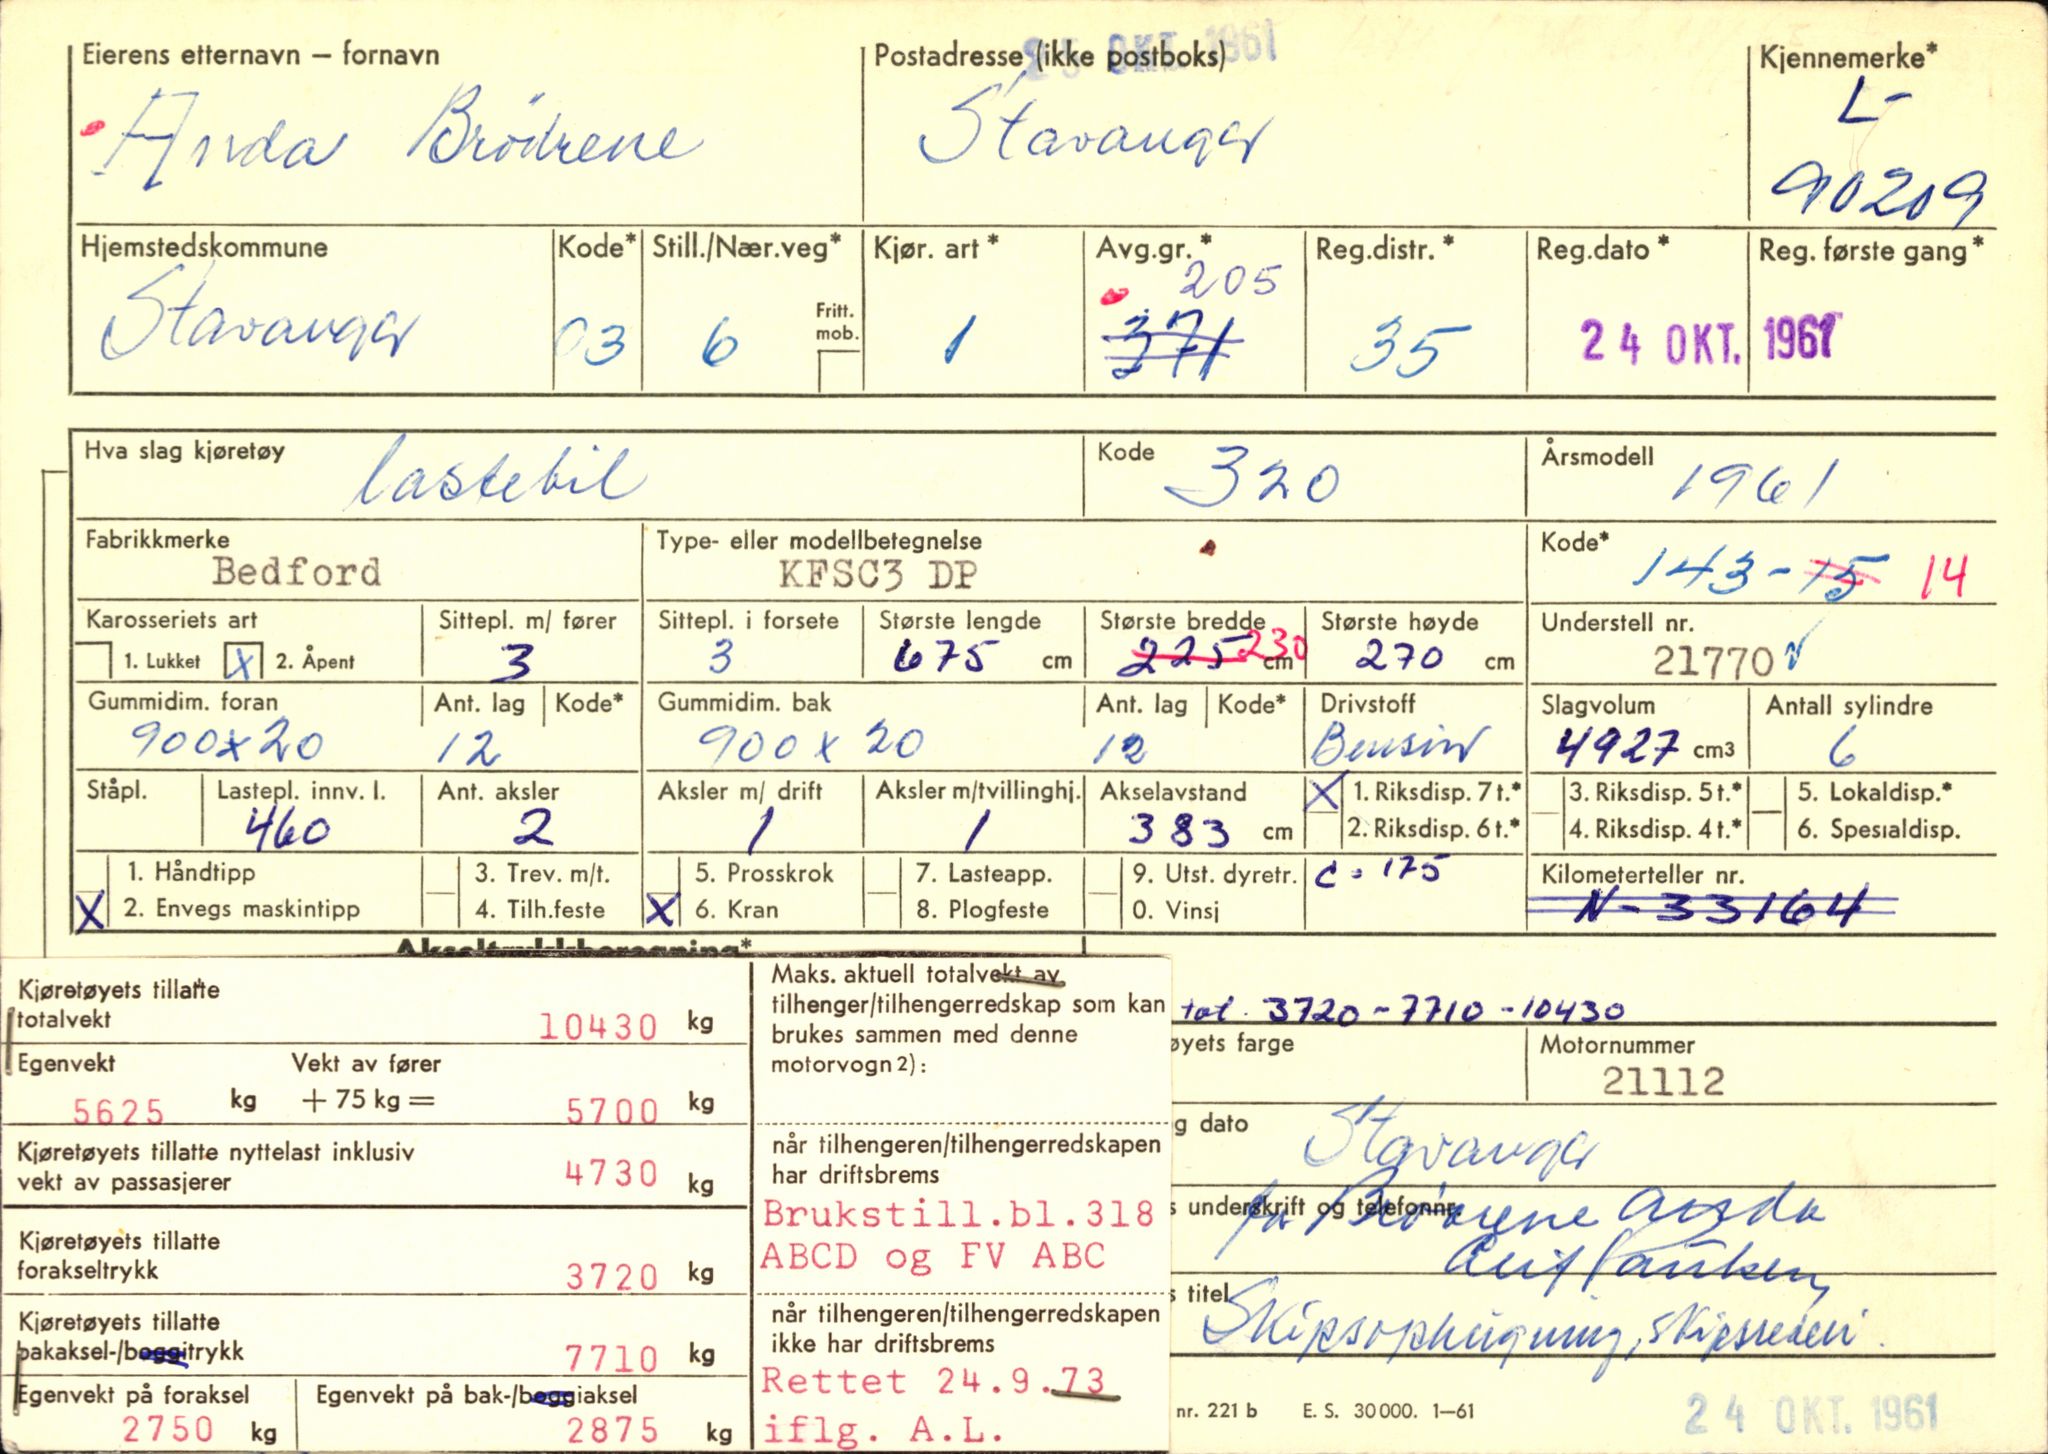 25 OKT. 1961
Eierens etternavn – fornavn
Anda Brödrene
Postadresse (ikke postboks)
Stavanger
Kjennemerke*
L-
90209
Hjemstedskommune
Stavanger
Kode*
03
Still./Nær.veg*
6
Fritt. mob.
Kjør. art*
1
Avg.gr.*
205
371
Reg.distr.*
35
Reg.dato*
24 OKT. 1961
Reg. første gang*
Hva slag kjøretøy
lastebil
Kode
320
Årsmodell
1961
Fabrikkmerke
Bedford
Type- eller modellbetegnelse
KFSC3 DP
Kode*
143-15 14
Karosseriets art
1. Lukket X 2. Åpent
Sittepl. m/ fører
3
Sittepl. i forsete
3
Største lengde
675 cm
Største bredde
225 230 cm
Største høyde
270 cm
Understell nr.
21770
Gummidim. foran
900x20
Ant. lag
12
Kode*
Gummidim. bak
900x20
Ant. lag
12
Kode*
Drivstoff
Bensin
Slagvolum
4927 cm3
Antall sylindre
6
Ståpl.
Lastepl. innv. l.
460
Ant. aksler
2
Aksler m/ drift
1
Aksler m/tvillinghj.
1
Akselavstand
383 cm
X 1. Riksdisp. 7 t.*
2. Riksdisp. 6 t.*
3. Riksdisp. 5 t.*
4. Riksdisp. 4 t.*
5. Lokaldisp.*
6. Spesialdisp.
1. Håndtipp
X 2. Envegs maskintipp
3. Trev. m/t.
4. Tilh.feste
5. Prosskrok
X 6. Kran
7. Lasteapp.
8. Plogfeste
9. Utst. dyretr.
0. Vinsj
c = 175
Kilometerteller nr.
N-33164
Akseltrykkberegning*
Kjøretøyets tillatte
totalvekt 10430 kg
Egenvekt
5625 kg
Vekt av fører
+ 75 kg = 5700 kg
Kjøretøyets tillatte nyttelast inklusiv
vekt av passasjerer 4730 kg
Kjøretøyets tillatte
forakseltrykk 3720 kg
Kjøretøyets tillatte
bakaksel-/boggitrykk 7710 kg
Egenvekt på foraksel
2750 kg
Egenvekt på bak-/boggiaksel
2875 kg
Maks. aktuell totalvekt av
tilhenger/tilhengerredskap som kan
brukes sammen med denne
motorvogn 2) :
når tilhengeren/tilhengerredskapen
har driftsbrems
Brukstill.bl.318
ABCD og FV ABC
når tilhengeren/tilhengerredskapen
ikke har driftsbrems
Rettet 24.9.73
iflg. A.L.
tol. 3720-7710-10430
øyets farge
Motornummer
21112
g dato
Stavanger
s underskrift og telefonnr.
for Brödrene Anda
s titel
Skipsophugning, skipsrederi.
nr. 221 b E. S. 30 000. 1–61
24 OKT. 1961